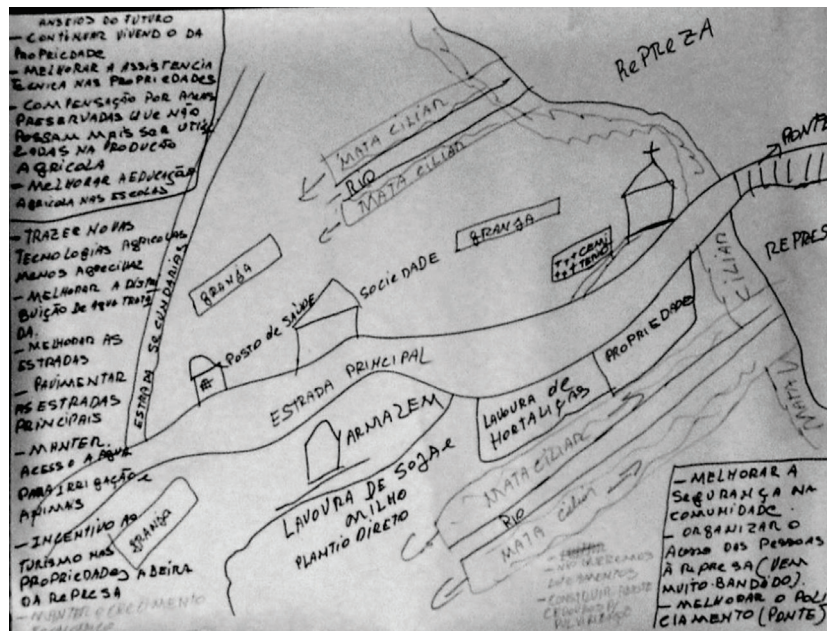 ANSEIOS DO FUTURO
- CONTINUAR VIVENDO DA
PROPRIEDADE
- MELHORAR A ASSISTENCIA
TECNICA NAS PROPRIEDADES
- COMPENSAÇÃO POR AREAS
PRESERVADAS QUE NÃO
POSSAM MAIS SER UTILI
ZADAS NA PRODUÇÃO
AGRICOLA
- MELHORAR A EDUCAÇÃO
AGRICOLA NAS ESCOLAS
- TRAZER NOVAS
TECNOLOGIAS AGRICOLAS
MENOS
- MELHORAR A DISTRI
BUIÇÃO DE AGUA TRATA
DA.
- MELHORAR AS
ESTRADAS
- PAVIMENTAR
AS ESTRADAS
PRINCIPAIS
- MANTER
ACESSO A AGUA
PARA IRRIGAÇÃO e
ANIMAIS
- INCENTIVO AO
TURISMO NAS
PROPRIEDADES A BEIRA
DA REPRESA
- MANTER O CRESCIMENTO
ESTRADA SECUNDARIAS
REPREZA
MATA CILIAR
RIO
MATA CILIAR
PONTE
REPRES
GRANJA
GRANJA
SOCIEDADE
CEMI
TERIO
POSTO de SAÚDE
ESTRADA PRINCIPAL
PROPRIEDADE
CILIAR
MATA
ARMAZEM
LAVOURA de
HORTALIÇAS
LAVOURA DE SOJA e
MILHO
PLANTIO DIRETO
MATA CILIAR
RIO
MATA CILIAR
GRANJA
LOTEAMENTOS
- MELHORAR A
SEGURANÇA NA
COMUNIDADE.
- ORGANIZAR O
ACESSO DAS PESSOAS
À REPRESA (VEM
MUITO BANDIDO).
- MELHORAR O POLI
CIAMENTO (PONTE)